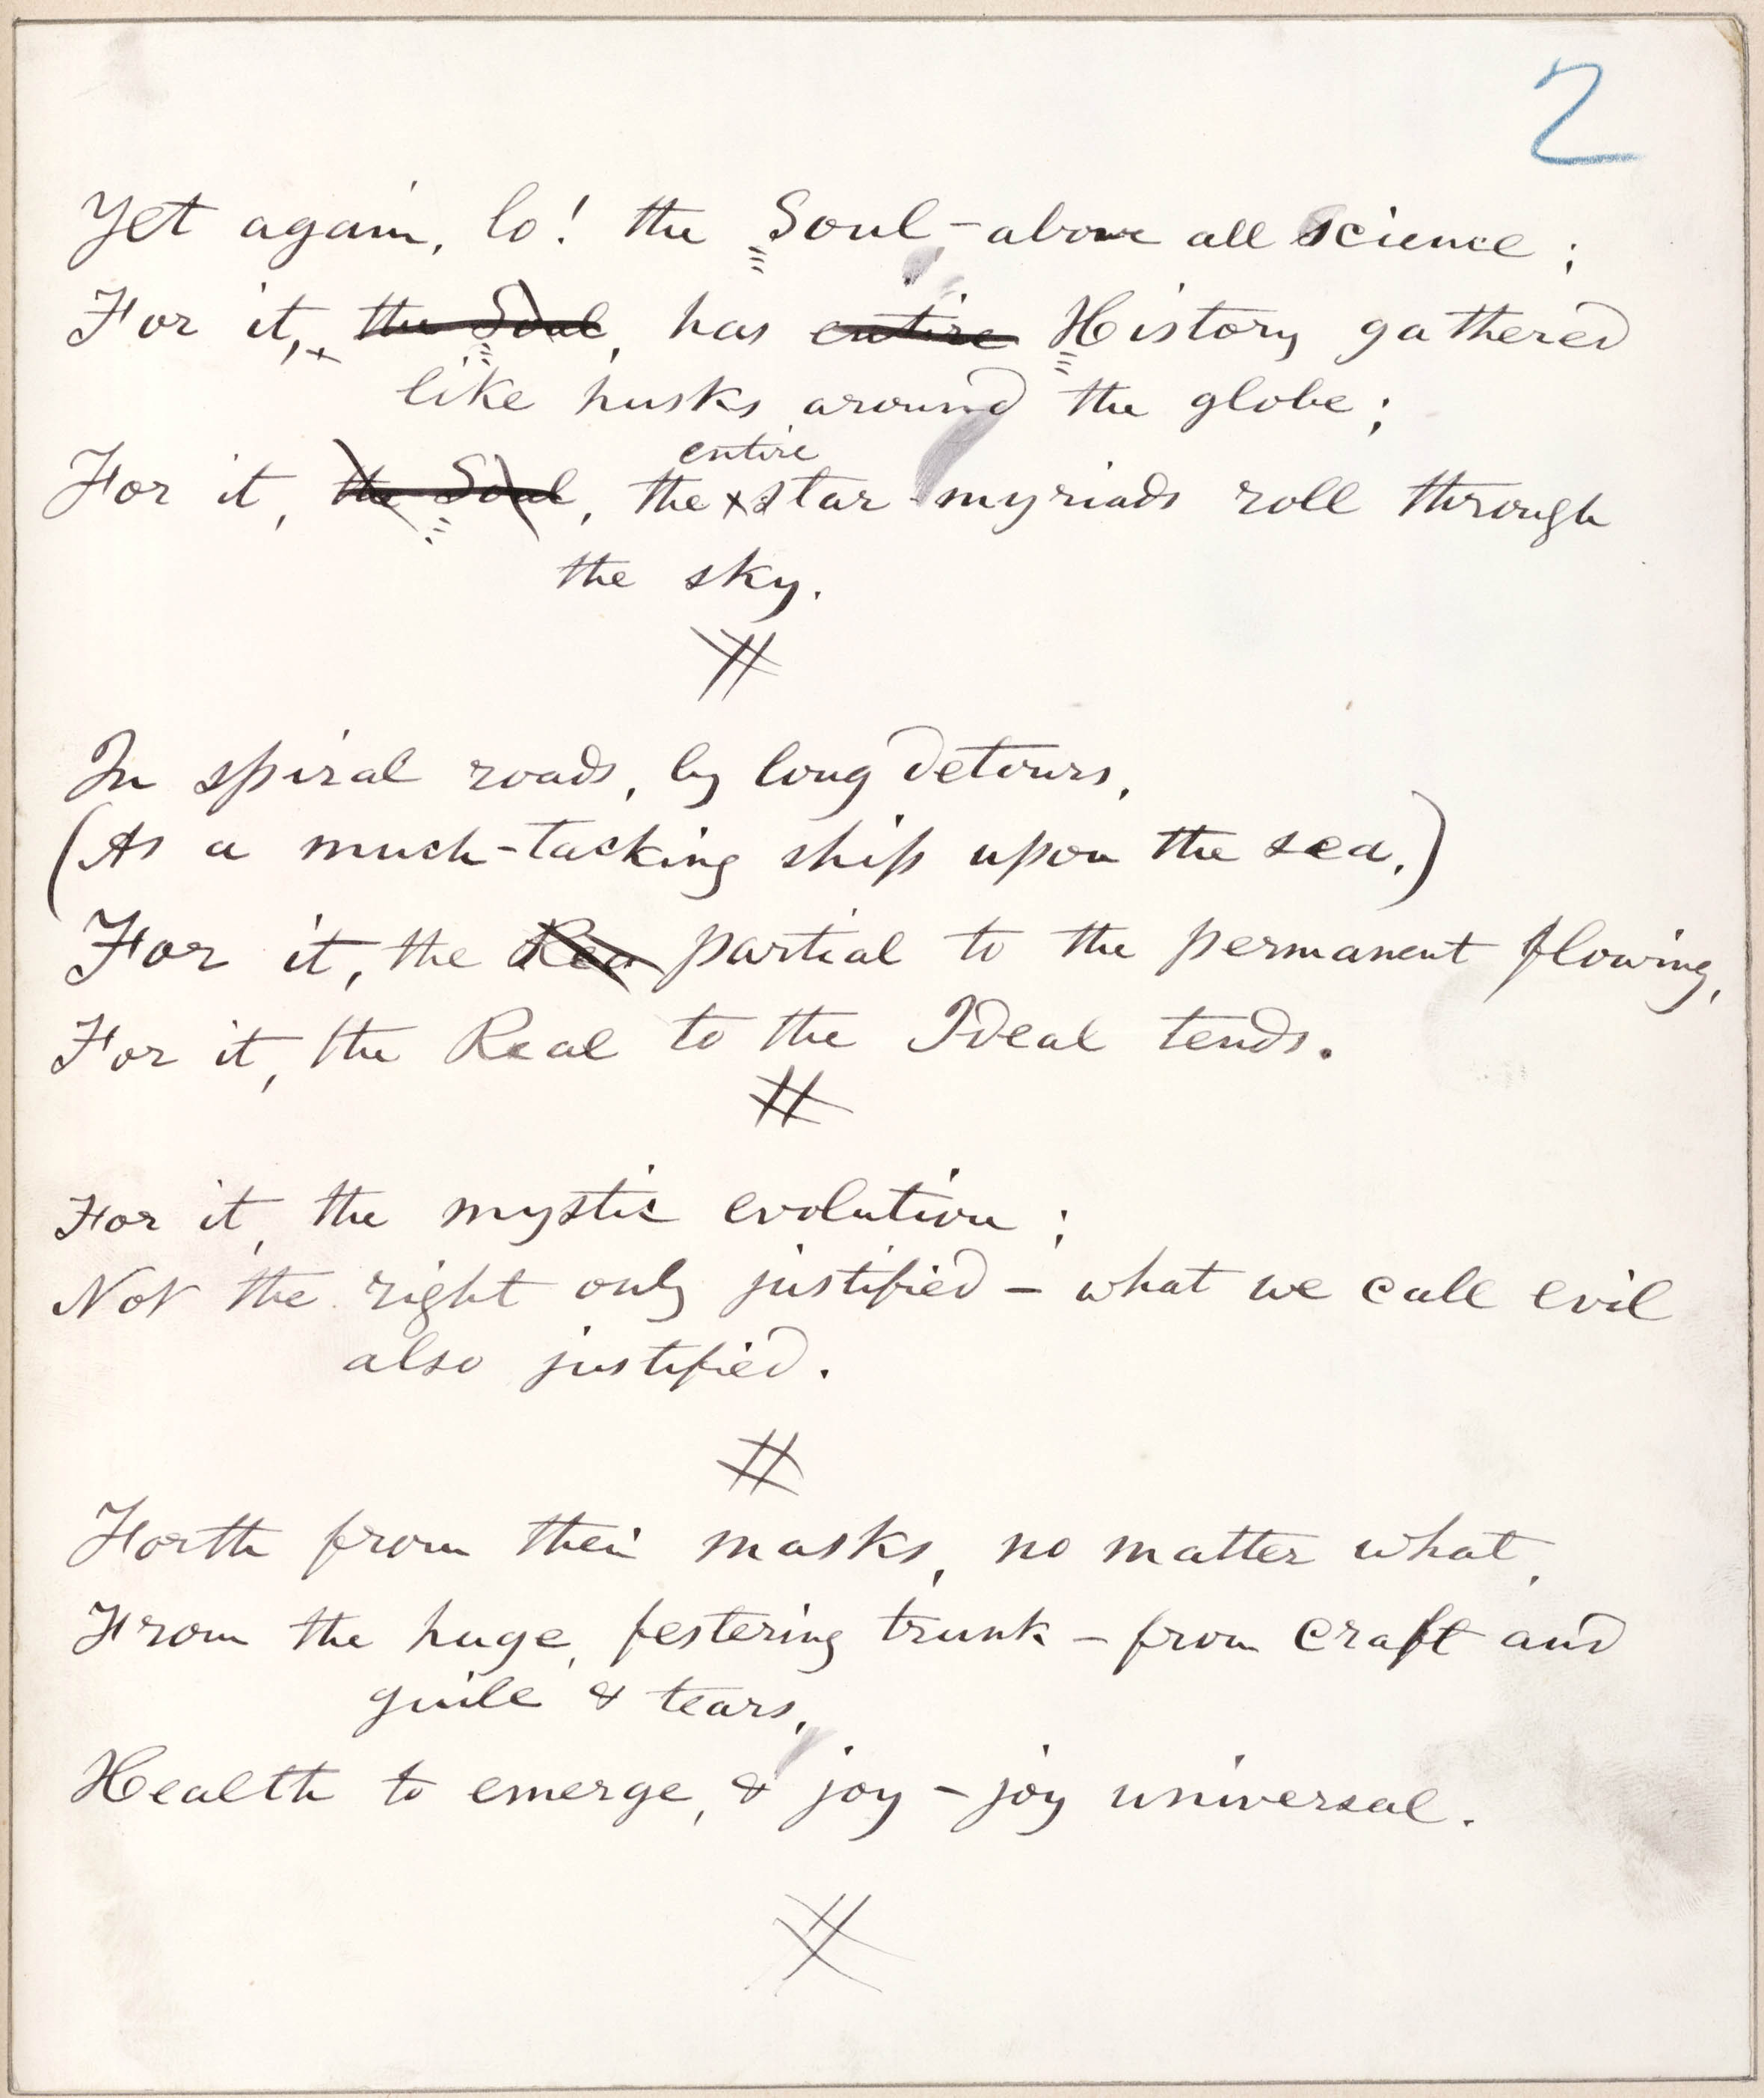 2
Yet again, lo! the Soul – above all science;
For it, the Soul, has entire History gathered
like husks around the globe;
entire
For it, the Soul, the x star-myriads roll through
the sky.
#
In spiral roads, by long detours,
(As a much-tacking ship upon the sea,)
For it, the Rea partial to the permanent flowing,
For it, the Real to the Ideal tends.
#
For it, the mystic evolution;
Not the right only justified – what we call evil
also justified.
#
Forth from their masks, no matter what,
From the huge, festering trunk – from craft and
guile & tears,
Health to emerge, & joy – joy universal.
#